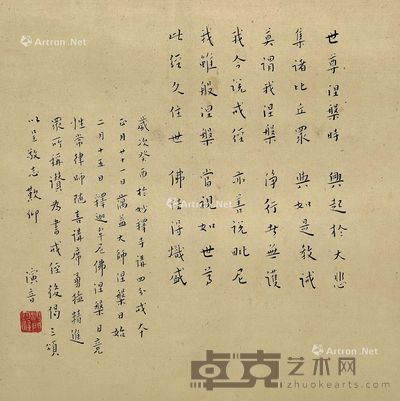 世尊涅槃時 興起於大悲
集諸比丘眾 與如是教誡
莫謂我涅槃 淨行者無護
我今說戒經 亦善說毗尼
我雖般涅槃 當視如世尊
此經久住世 佛法得熾盛
歲次癸酉於妙釋寺講四分戒本
正月廿一日蕅益大師涅槃日始
二月十五日釋迦牟尼佛涅槃日竟
性常律師隨喜講席勇猛精進
眾所稱讚為書戒經後偈三頌
以呈敬志歎仰
演音
Artron.Net
Artron.Net
Artron.Net
Artron.Net
卓克艺术网
zhuokearts.com